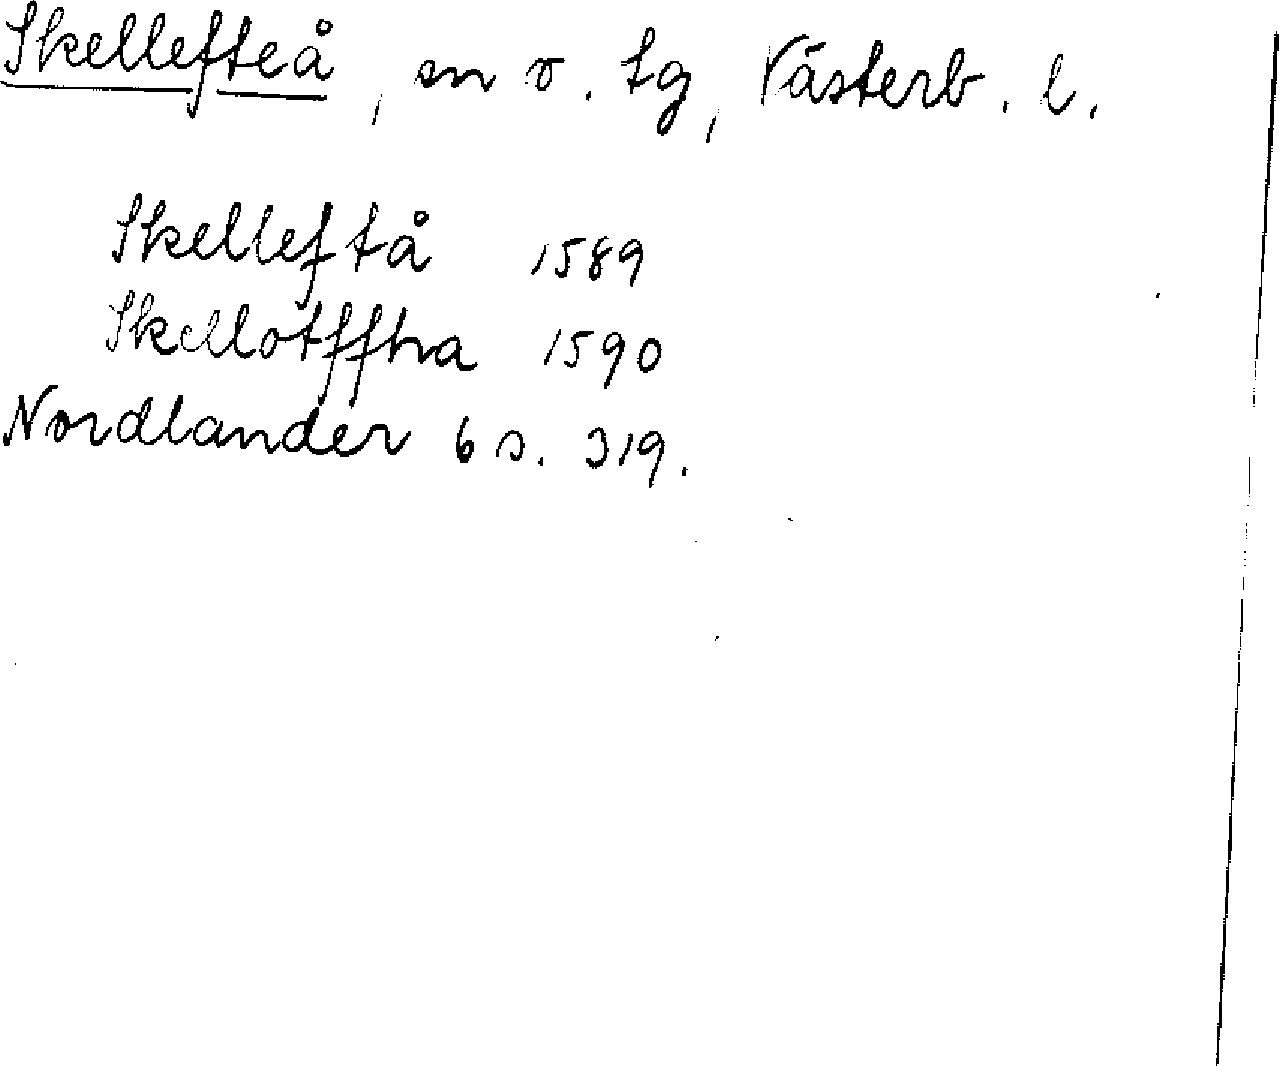 Skellefteå, sn o. tg, Västerb. l.
Skelleftå 1589
Skellotffha 1590
Nordlander 6 s. 319.